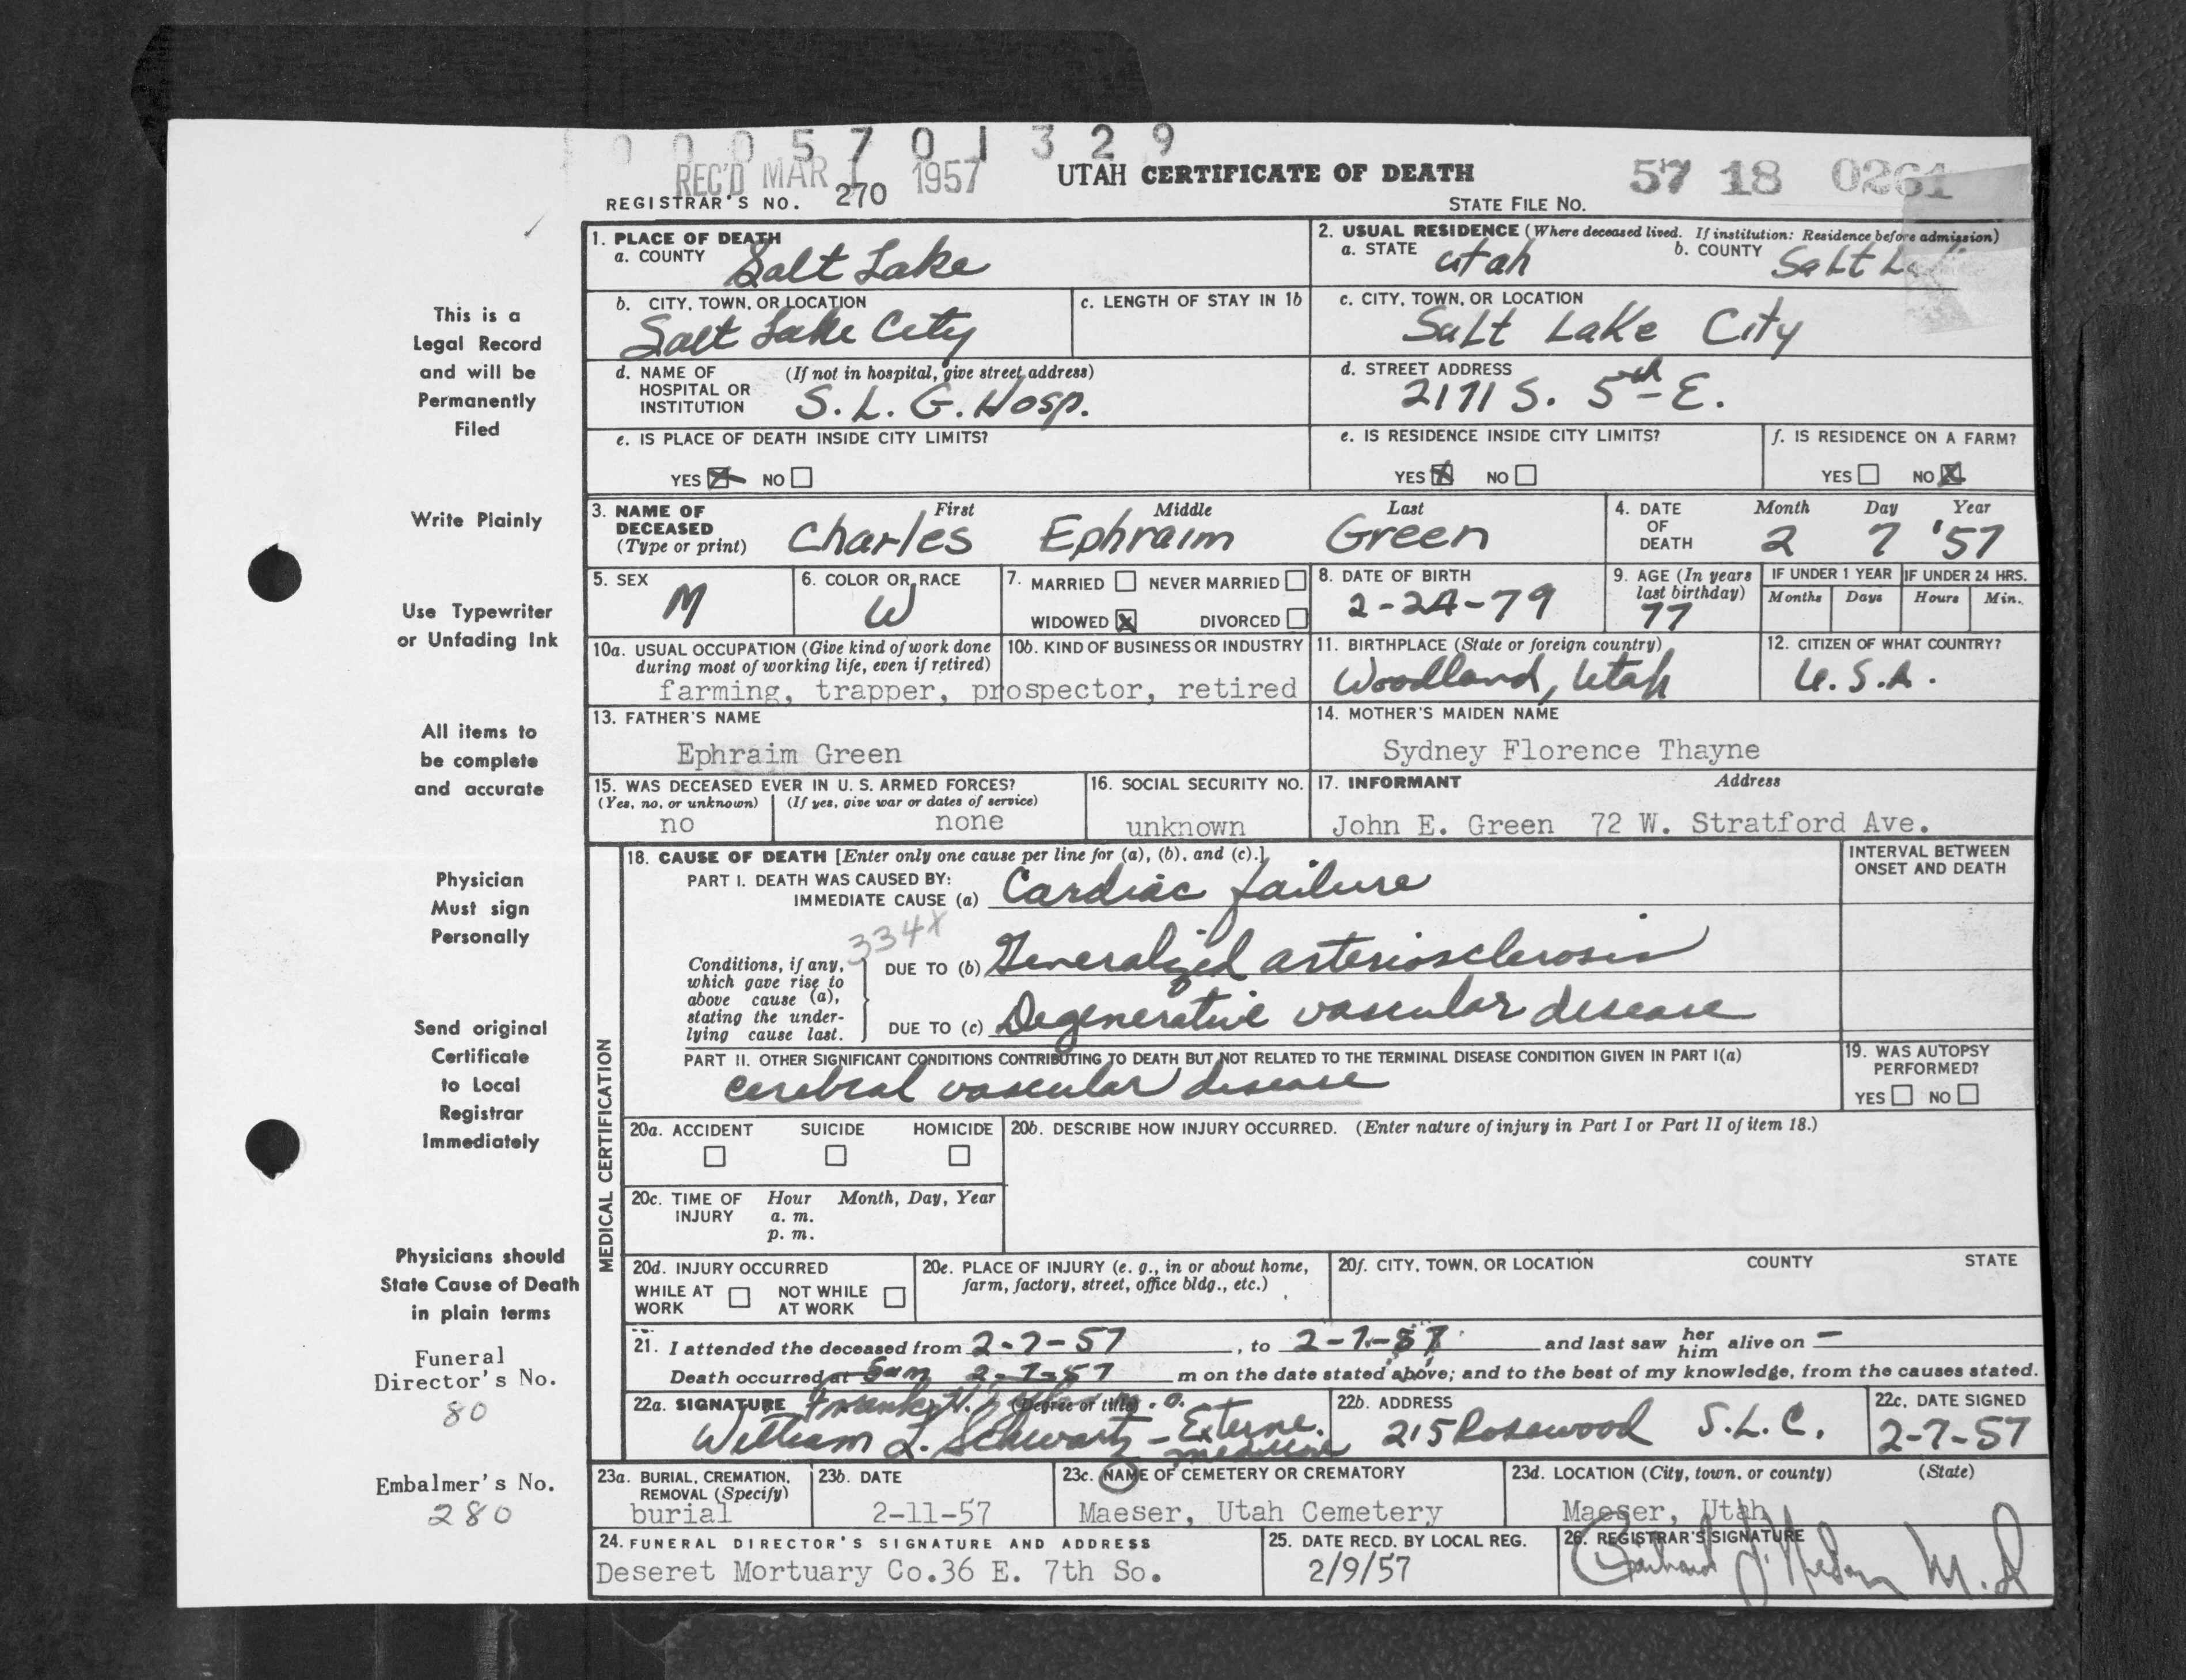 0 0 0 5 7 0 1 3 2 9
REC'D MAR 1 1957
UTAH CERTIFICATE OF DEATH
57 18 0261
REGISTRAR'S NO. 270
STATE FILE NO.
This is a
Legal Record
and will be
Permanently
Filed
Write Plainly
Use Typewriter
or Unfading Ink
All items to
be complete
and accurate
Physician
Must sign
Personally
Send original
Certificate
to Local
Registrar
Immediately
Physicians should
State Cause of Death
in plain terms
Funeral
Director's No.
80
Embalmer's No.
280
1. PLACE OF DEATH
a. COUNTY Salt Lake
2. USUAL RESIDENCE (Where deceased lived. If institution: Residence before admission)
a. STATE Utah b. COUNTY Salt
b. CITY, TOWN, OR LOCATION
Salt Lake City
c. LENGTH OF STAY IN 1b
c. CITY, TOWN, OR LOCATION
Salt Lake City
d. NAME OF (If not in hospital, give street address)
HOSPITAL OR
INSTITUTION S. L. G. Hosp.
d. STREET ADDRESS
2171 S. 5th E.
e. IS PLACE OF DEATH INSIDE CITY LIMITS?
YES X NO
e. IS RESIDENCE INSIDE CITY LIMITS?
YES X NO
f. IS RESIDENCE ON A FARM?
YES NO X
3. NAME OF First Middle Last
DECEASED
(Type or print) Charles Ephraim Green
4. DATE Month Day Year
OF
DEATH 2 7 '57
5. SEX
M
6. COLOR OR RACE
W
7. MARRIED NEVER MARRIED
WIDOWED X DIVORCED
8. DATE OF BIRTH
2-24-79
9. AGE (In years
last birthday)
77
IF UNDER 1 YEAR IF UNDER 24 HRS.
Months Days Hours Min.
10a. USUAL OCCUPATION (Give kind of work done
during most of working life, even if retired)
10b. KIND OF BUSINESS OR INDUSTRY
farming, trapper, prospector, retired
11. BIRTHPLACE (State or foreign country)
Woodland, Utah
12. CITIZEN OF WHAT COUNTRY?
U.S.A.
13. FATHER'S NAME
Ephraim Green
14. MOTHER'S MAIDEN NAME
Sydney Florence Thayne
15. WAS DECEASED EVER IN U. S. ARMED FORCES?
(Yes, no, or unknown) (If yes, give war or dates of service)
no none
16. SOCIAL SECURITY NO.
unknown
17. INFORMANT Address
John E. Green 72 W. Stratford Ave.
MEDICAL CERTIFICATION
18. CAUSE OF DEATH [Enter only one cause per line for (a), (b), and (c).]
PART I. DEATH WAS CAUSED BY:
IMMEDIATE CAUSE (a) Cardiac failure
334X
Conditions, if any,
which gave rise to
above cause (a),
stating the under-
lying cause last.
DUE TO (b) Generalized arteriosclerosis
DUE TO (c) Degenerative vascular disease
INTERVAL BETWEEN
ONSET AND DEATH
PART II. OTHER SIGNIFICANT CONDITIONS CONTRIBUTING TO DEATH BUT NOT RELATED TO THE TERMINAL DISEASE CONDITION GIVEN IN PART I(a)
cerebral vascular disease
19. WAS AUTOPSY
PERFORMED?
YES NO
20a. ACCIDENT SUICIDE HOMICIDE
20b. DESCRIBE HOW INJURY OCCURRED. (Enter nature of injury in Part I or Part II of item 18.)
20c. TIME OF Hour Month, Day, Year
INJURY a. m.
p. m.
20d. INJURY OCCURRED
WHILE AT NOT WHILE
WORK AT WORK
20e. PLACE OF INJURY (e. g., in or about home,
farm, factory, street, office bldg., etc.)
20f. CITY, TOWN, OR LOCATION COUNTY STATE
21. I attended the deceased from 2-7-57, to 2-7-57 and last saw her him alive on —
Death occurred at 5am 2-7-57 m on the date stated above; and to the best of my knowledge, from the causes stated.
22a. SIGNATURE Frank (Degree or title)
William L. Schwartz - Externe.
medicine
22b. ADDRESS
215 Rosewood S.L.C.
22c. DATE SIGNED
2-7-57
23a. BURIAL, CREMATION,
REMOVAL (Specify)
burial
23b. DATE
2-11-57
23c. NAME OF CEMETERY OR CREMATORY
Maeser, Utah Cemetery
23d. LOCATION (City, town, or county) (State)
Maeser, Utah
24. FUNERAL DIRECTOR'S SIGNATURE AND ADDRESS
Deseret Mortuary Co. 36 E. 7th So.
25. DATE RECD. BY LOCAL REG.
2/9/57
26. REGISTRAR'S SIGNATURE
M.D